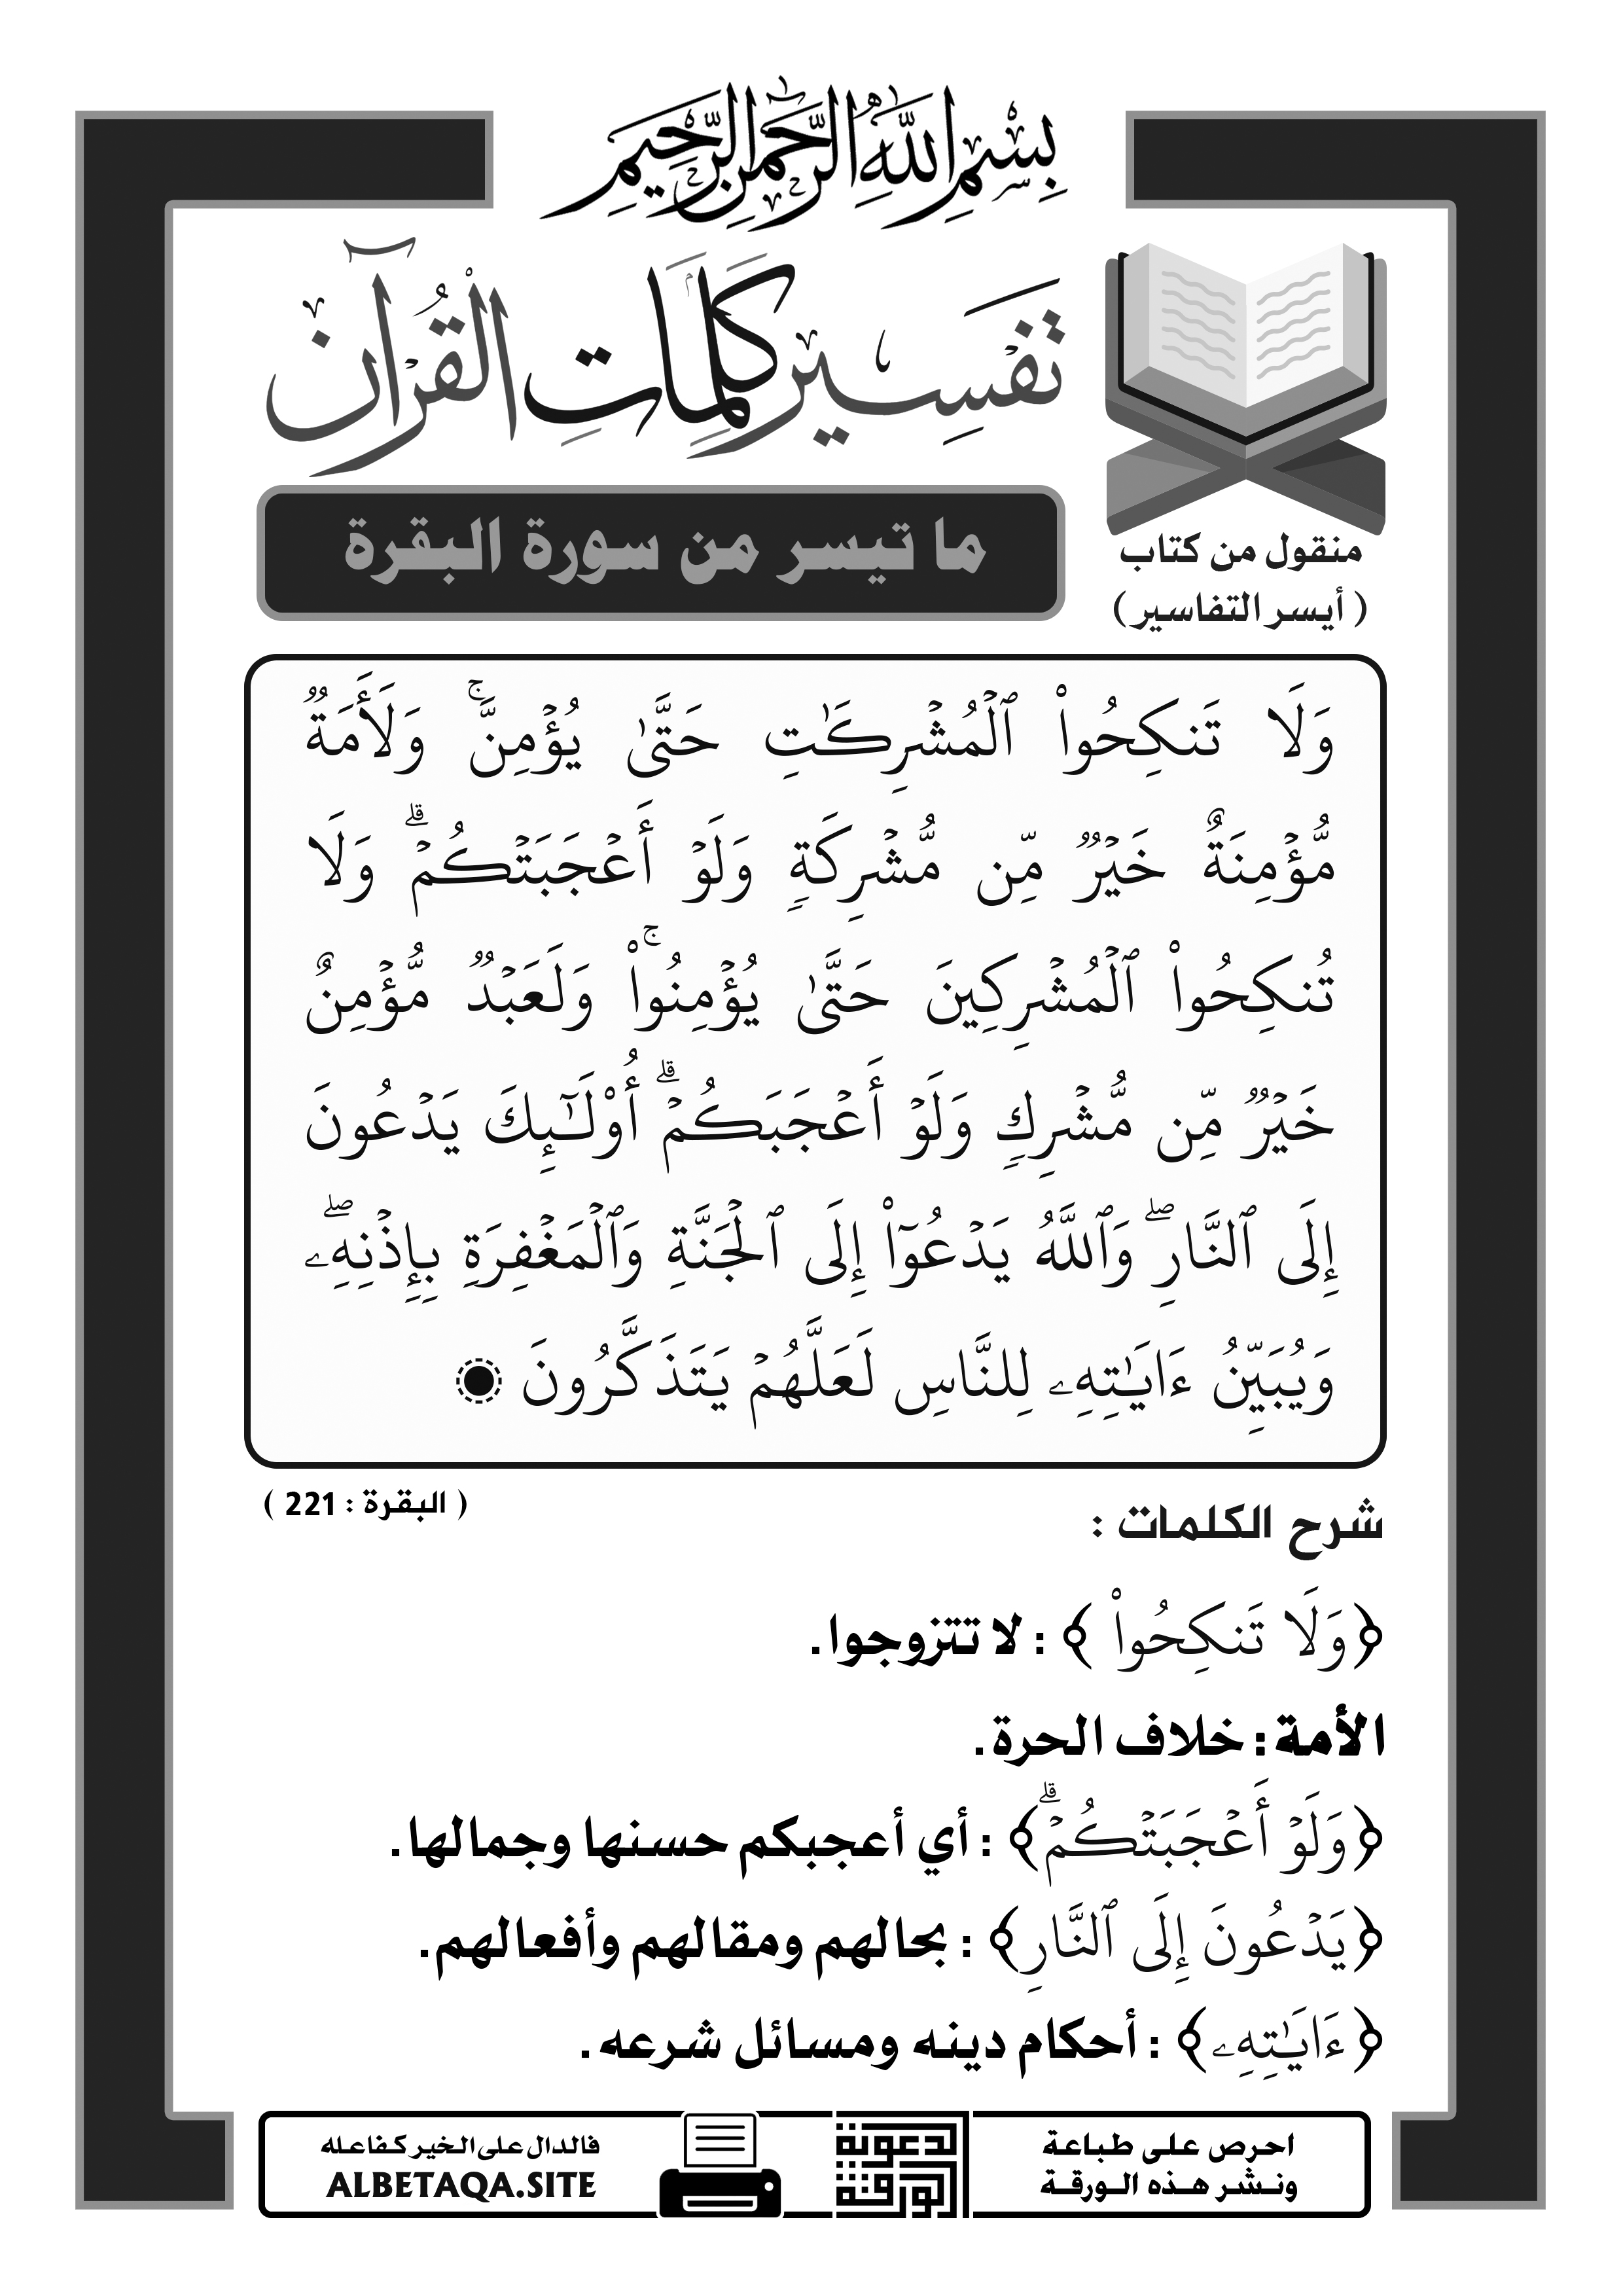 بِسْمِ اللَّهِ الرَّحْمَٰنِ الرَّحِيمِ
تَفْسِير كَلِمَاتِ القُرْآن
ما تيسر من سورة البقرة
منقول من كتاب
( أيسر التفاسير )
وَلَا تَنكِحُوا۟ ٱلْمُشْرِكَٰتِ حَتَّىٰ يُؤْمِنَّ ۚ وَلَأَمَةٌ
مُّؤْمِنَةٌ خَيْرٌ مِّن مُّشْرِكَةٍ وَلَوْ أَعْجَبَتْكُمْ ۗ وَلَا
تُنكِحُوا۟ ٱلْمُشْرِكِينَ حَتَّىٰ يُؤْمِنُوا۟ ۚ وَلَعَبْدٌ مُّؤْمِنٌ
خَيْرٌ مِّن مُّشْرِكٍ وَلَوْ أَعْجَبَكُمْ ۗ أُو۟لَٰٓئِكَ يَدْعُونَ
إِلَى ٱلنَّارِ ۖ وَٱللَّهُ يَدْعُوٓا۟ إِلَى ٱلْجَنَّةِ وَٱلْمَغْفِرَةِ بِإِذْنِهِۦ ۖ
وَيُبَيِّنُ ءَايَٰتِهِۦ لِلنَّاسِ لَعَلَّهُمْ يَتَذَكَّرُونَ
( البقرة : 221 )
شرح الكلمات :
﴿وَلَا تَنكِحُوا۟ ﴾ : لا تتزوجوا .
الأمة : خلاف الحرة .
﴿وَلَوْ أَعْجَبَتْكُمْ ۗ﴾ : أي أعجبكم حسنها وجمالها .
﴿يَدْعُونَ إِلَى ٱلنَّارِ﴾ : بحالهم ومقالهم وأفعالهم .
﴿ءَايَٰتِهِۦ﴾ : أحكام دينه ومسائل شرعه .
احرص على طباعة
ونشر هذه الورقة
الورقة
الدعوية
فالدال على الخير كفاعله
ALBETAQA.SITE